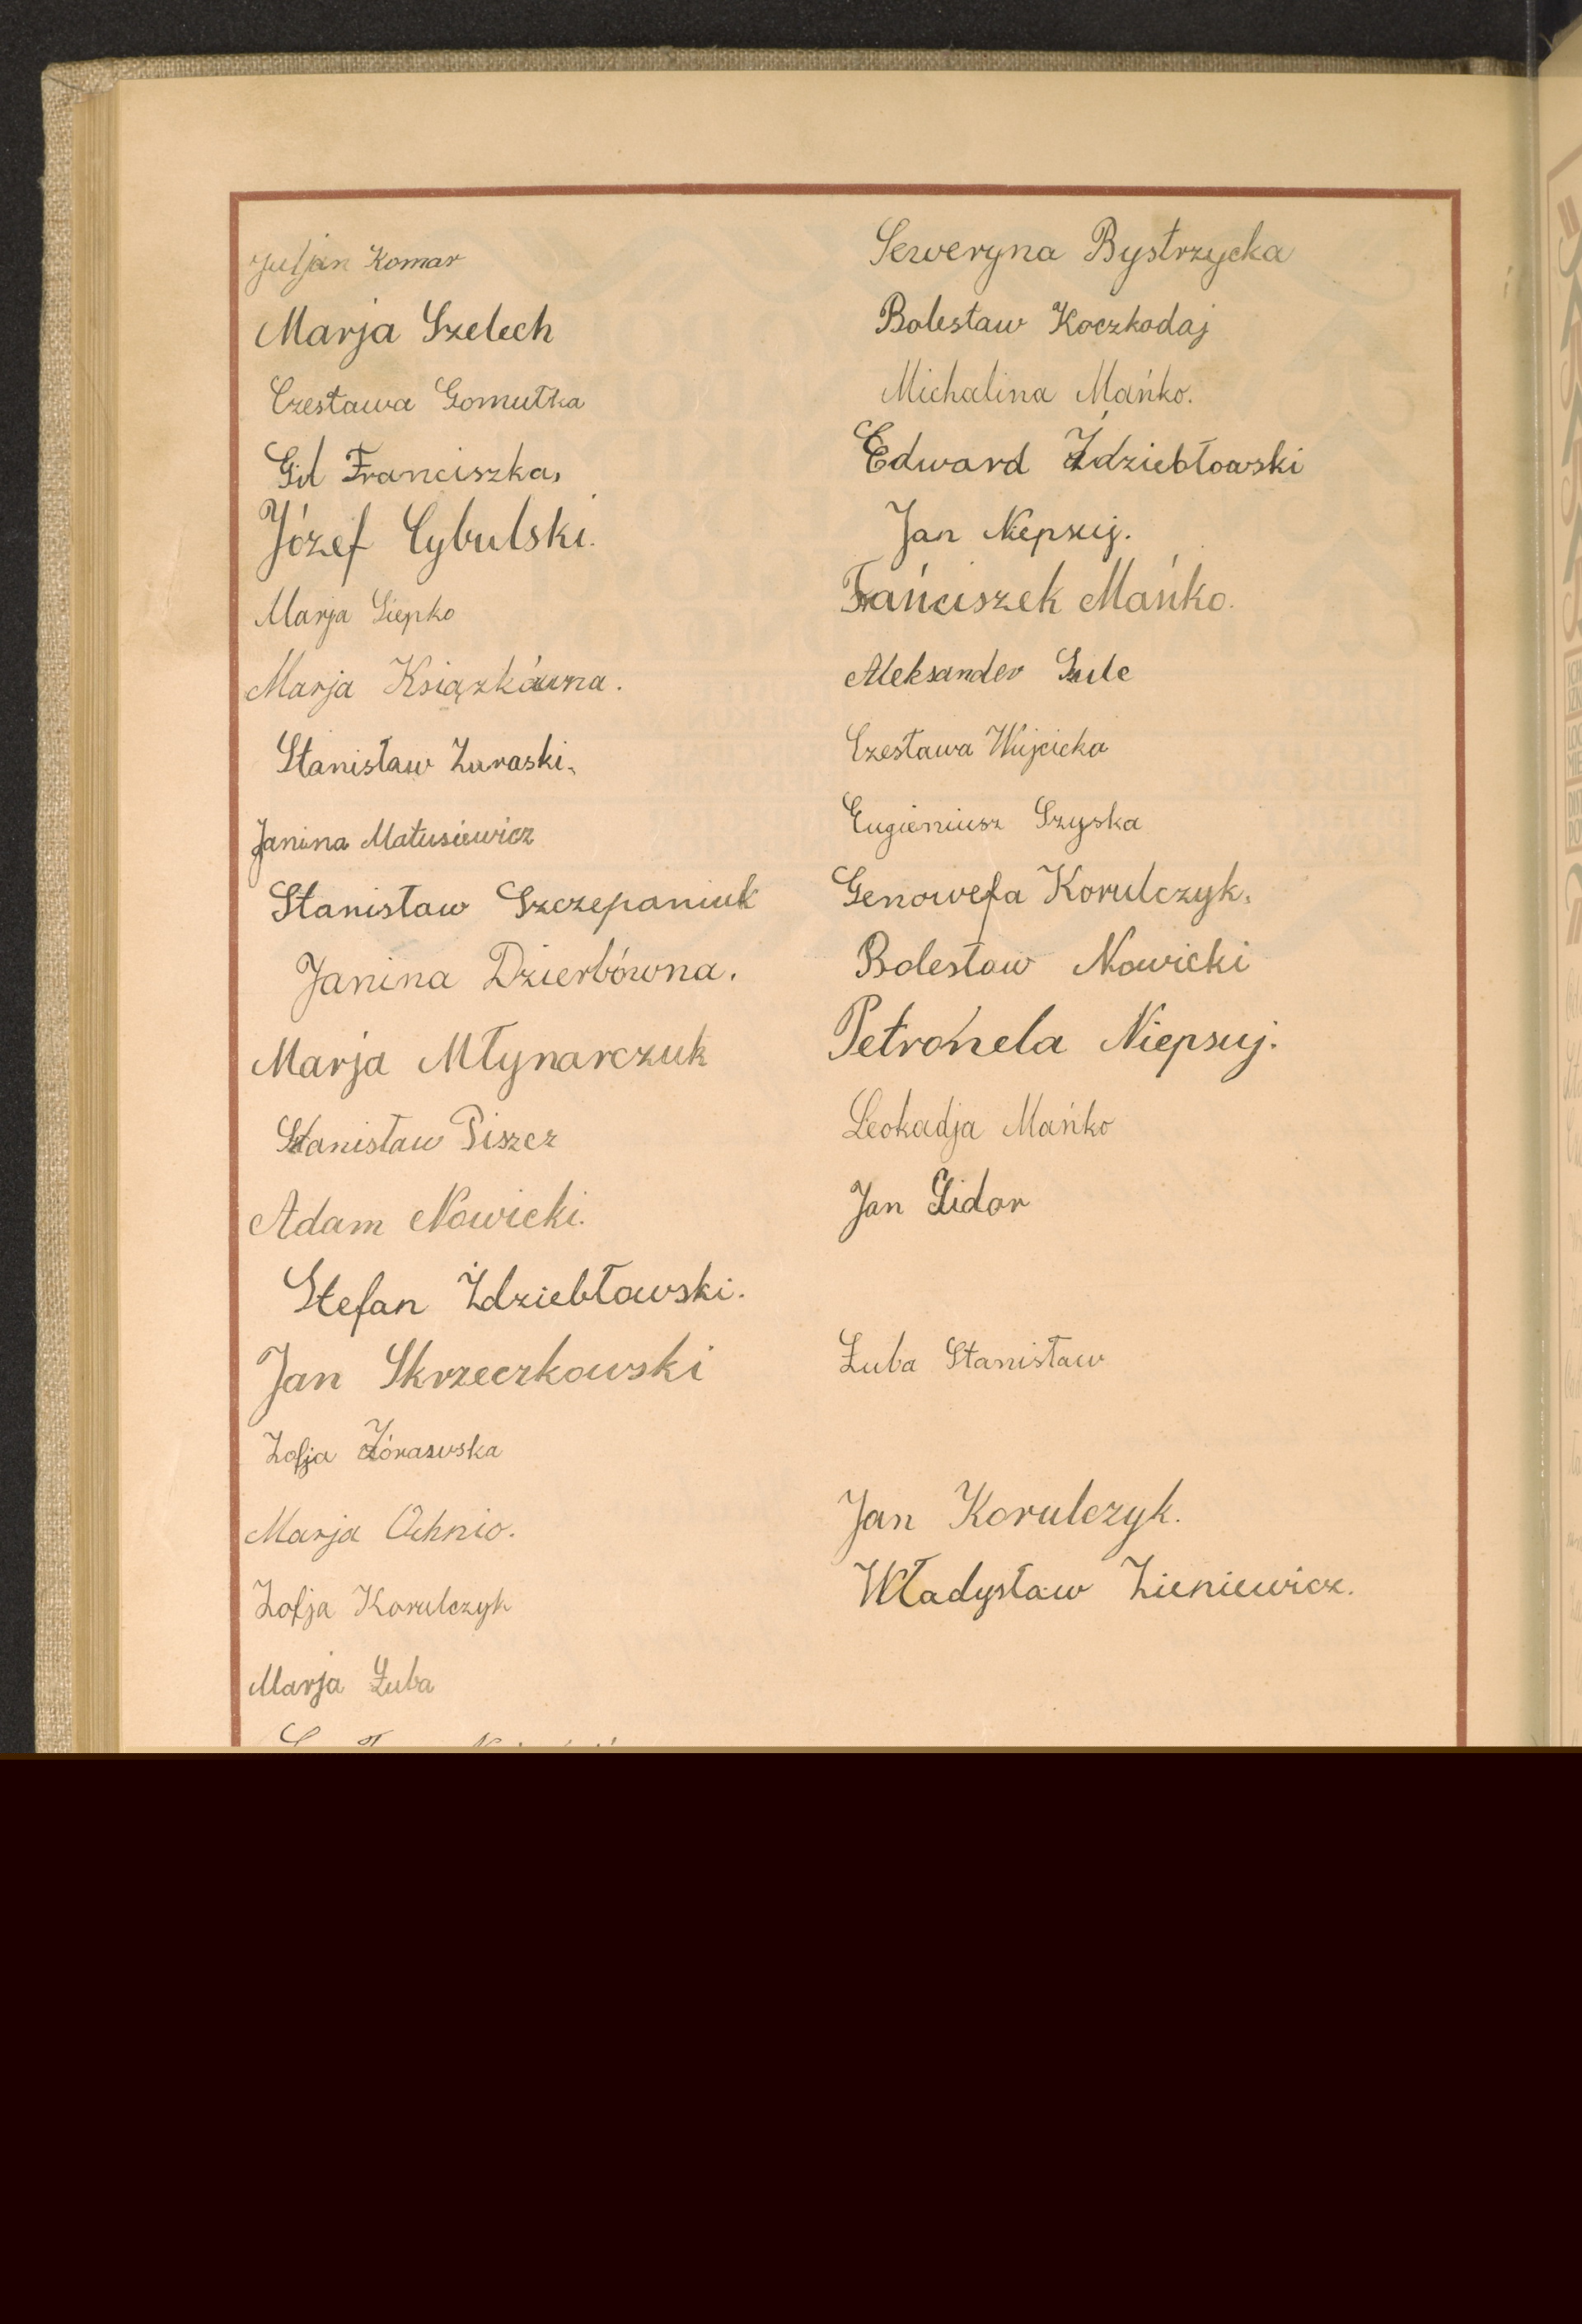 Juljan Komar
Marja Szelech
Czesława Gomułka
Gil Franciszka,
Józef Cybulski.
Marja Siepko
Marja Książkówna.
Stanisław Zuraski.
Janina Matusiewicz
Stanisław Szczepaniuk
Janina Dzierbówna.
Marja Młynarczuk
Stanisław Piszcz
Adam Nowicki.
Stefan Żdziebłowski.
Jan Skrzeczkowski
Zofja Żórawska
Marja Ochnio.
Zofja Korulczyk
Marja Łuba
Seweryna Bystrzycka
Bolesław Koczkodaj
Michalina Mańko.
Edward Żdziebłowski
Jan Niepsuj.
Frańciszek Mańko.
Aleksander Szulc
Czesława Wujcicka
Eugieniusz Szyska
Genowefa Korulczyk.
Bolesław Nowicki
Petronela Niepsuj.
Leokadja Mańko
Jan Sidor
Łuba Stanisław
Jan Korulczyk.
Władysław Zieniewicz.